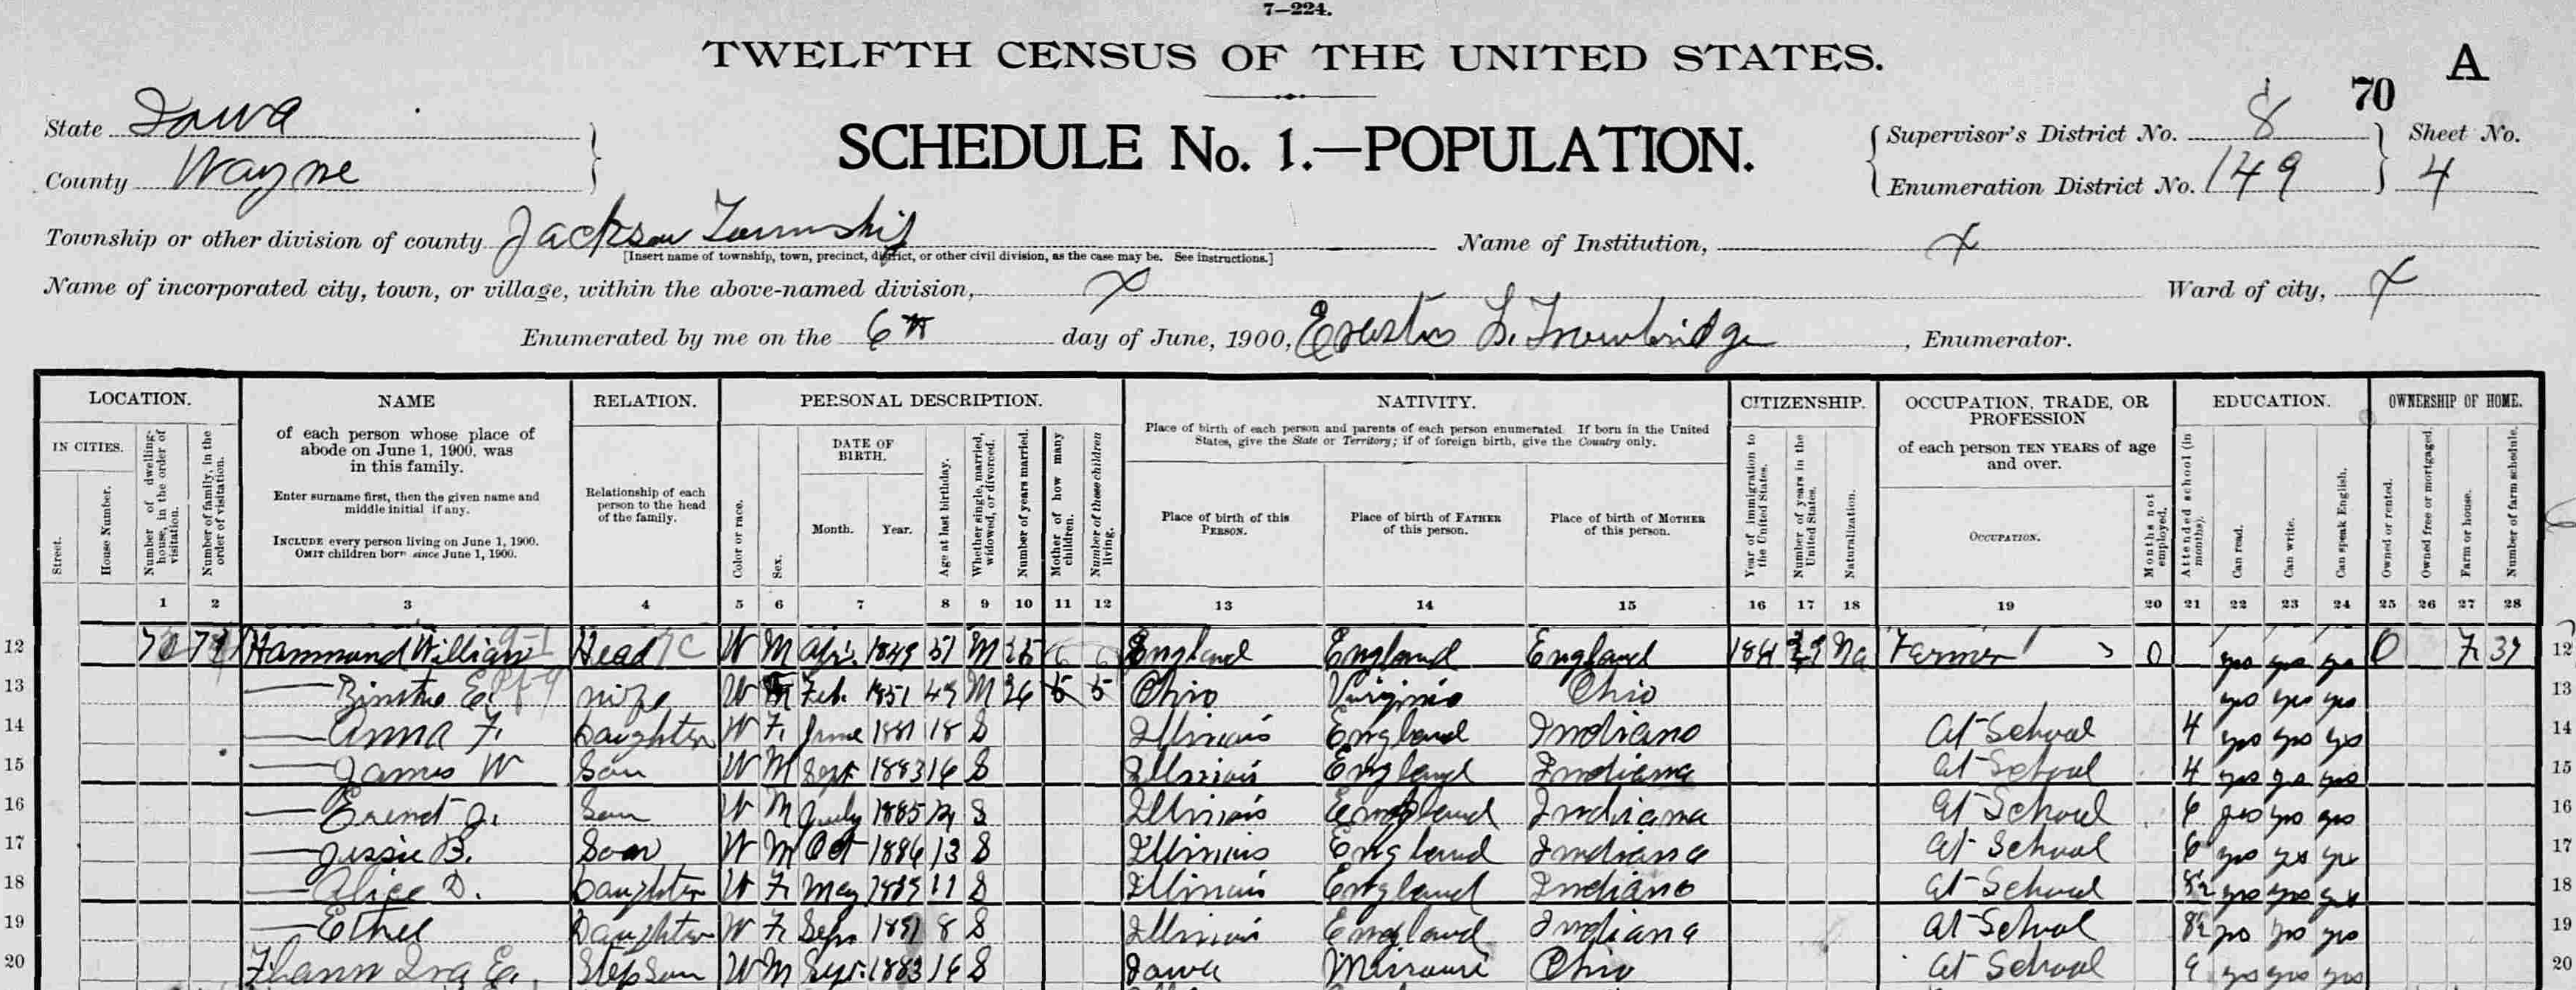 7—224.
TWELFTH CENSUS OF THE UNITED STATES.
A
70
State Iowa
SCHEDULE No. 1.—POPULATION.
Supervisor's District No. 8
Sheet No.
County Wayne
Enumeration District No. 149
4
Township or other division of county Jackson Township
Name of Institution, x
[Insert name of township, town, precinct, district, or other civil division, as the case may be. See instructions.]
Name of incorporated city, town, or village, within the above-named division, x
Ward of city, x
Enumerated by me on the 6th day of June, 1900, Erastus L. Trowbridge, Enumerator.
LOCATION. NAME RELATION. PERSONAL DESCRIPTION. NATIVITY. CITIZENSHIP. OCCUPATION, TRADE, OR PROFESSION EDUCATION. OWNERSHIP OF HOME.
IN CITIES.
Street.
House Number.
Number of dwelling-house, in the order of visitation.
Number of family, in the order of visitation.
of each person whose place of
abode on June 1, 1900, was
in this family.
Enter surname first, then the given name and
middle initial if any.
INCLUDE every person living on June 1, 1900.
OMIT children born since June 1, 1900.
Relationship of each
person to the head
of the family.
Color or race.
Sex.
DATE OF
BIRTH.
Month. Year.
Age at last birthday.
Whether single, married, widowed, or divorced.
Number of years married.
Mother of how many children.
Number of these children living.
Place of birth of each person and parents of each person enumerated. If born in the United
States, give the State or Territory; if of foreign birth, give the Country only.
Place of birth of this
PERSON.
Place of birth of FATHER
of this person.
Place of birth of MOTHER
of this person.
Year of immigration to the United States.
Number of years in the United States.
Naturalization.
of each person TEN YEARS of age
and over.
OCCUPATION.
Months not employed.
Attended school (in months).
Can read.
Can write.
Can speak English.
Owned or rented.
Owned free or mortgaged.
Farm or house.
Number of farm schedule.
1 2 3 4 5 6 7 8 9 10 11 12 13 14 15 16 17 18 19 20 21 22 23 24 25 26 27 28
12 Hammond William Head W M Apr. 1849 51 M England England England Na Farmer 0 yes yes yes O F 12
13 — E. wife W Feb. 1851 49 M 26 5 5 Ohio Virginia Ohio yes yes yes 13
14 — Anna F. Daughter W F. June 1881 18 S Illinois England Indiana At School 4 yes yes yes 14
15 — James W Son W M Sept 1883 16 S Illinois England Indiana At School 4 yes yes yes 15
16 — J. Son W M July 1885 14 S Illinois England Indiana At School 6 yes yes yes 16
17 — Jessie B. Son W M Oct 1886 13 S Illinois England Indiana At School 6 yes yes yes 17
18 — Alice D. Daughter W F. May 1889 11 S Illinois England Indiana At School 8½ yes yes yes 18
19 — Ethel Daughter W F. Sep. 1891 8 S Illinois England Indiana At School 8½ yes yes yes 19
20 Ira E. Step Son W M 1883 16 S Iowa Missouri Ohio At School 9 yes yes yes 20